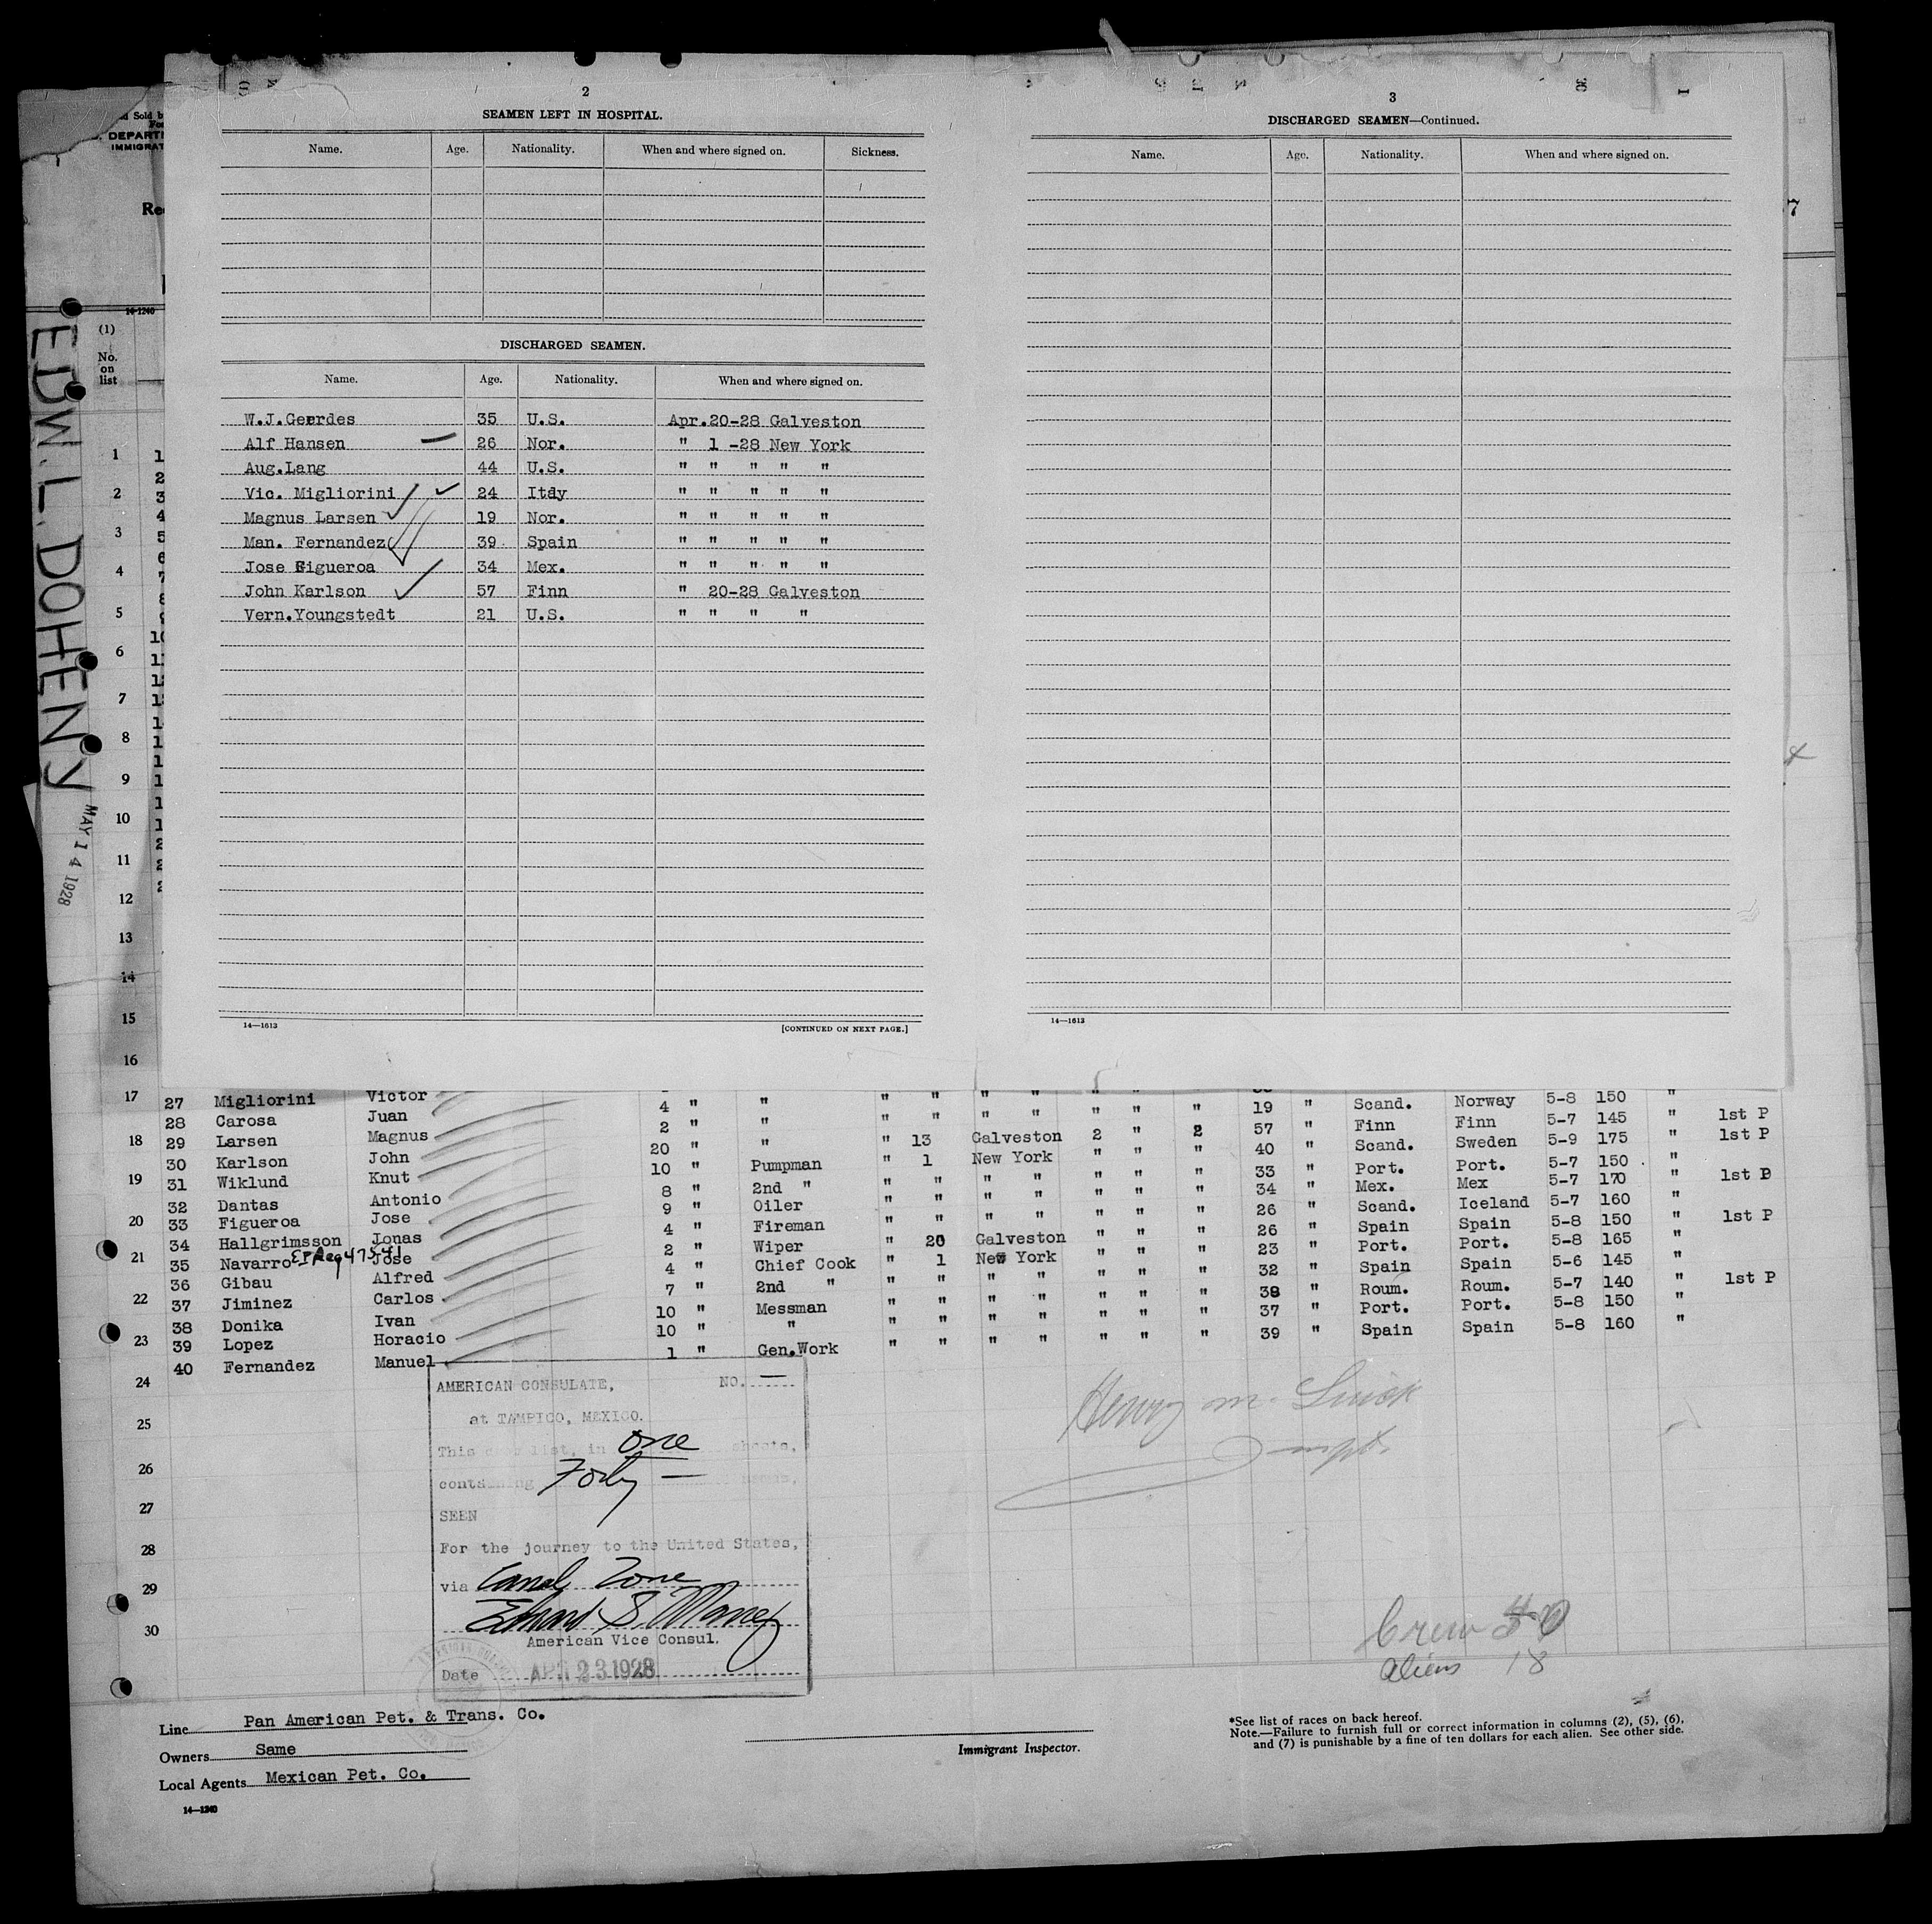 2
SEAMEN LEFT IN HOSPITAL.
Name. Age. Nationality. When and where signed on. Sickness.
DISCHARGED SEAMEN.
Name. Age. Nationality. When and where signed on.
W.J.Geerdes 35 U.S. Apr.20-28 Galveston
Alf Hansen 26 Nor. " 1 -28 New York
Aug.Lang 44 U.S. " " " " "
Vic. Migliorini 24 Itay " " " " "
Magnus Larsen 19 Nor. " " " " "
Man. Fernandez 39 Spain " " " " "
Jose Figueroa 34 Mex. " " " " "
John Karlson 57 Finn " 20-28 Galveston
Vern.Youngstedt 21 U.S. " " " "
14—1613 [CONTINUED ON NEXT PAGE.]
3
DISCHARGED SEAMEN—Continued.
Name. Age. Nationality. When and where signed on.
14—1613
Sold b
DEPART
IMMIGRAT
Re
7
14-1240
(1)
No.
on
list
EDW. L. DOHENY
MAY 14 1928
1
2
3
4
5
6
7
8
9
10
11
12
13
14
15
16
17
18
19
20
21
22
23
24
25
26
27
28
29
30
27 Migliorini Victor " " " " " " "
28 Carosa Juan 4 " " " " " " " " " 19 " Scand. Norway 5-8 150 "
29 Larsen Magnus 2 " " " " " " " " " 57 " Finn Finn 5-7 145 " 1st P
30 Karlson John 20 " " " 13 Galveston 2 " 2 40 " Scand. Sweden 5-9 175 " 1st P
31 Wiklund Knut 10 " Pumpman " 1 New York " " " 33 " Port. Port. 5-7 150 "
32 Dantas Antonio 8 " 2nd " " " " " " " " 34 " Mex. Mex 5-7 170 " 1st P
33 Figueroa Jose 9 " Oiler " " " " " " " 26 " Scand. Iceland 5-7 160 "
34 Hallgrimsson Jonas 4 " Fireman " " " " " " " 26 " Spain Spain 5-8 150 " 1st P
35 Navarro Jose 2 " Wiper " 20 Galveston " " " 23 " Port. Port. 5-8 165 "
36 Gibau Alfred 4 " Chief Cook " 1 New York " " " 32 " Spain Spain 5-6 145 "
37 Jiminez Carlos 7 " 2nd " " " " " " " " 38 " Roum. Roum. 5-7 140 " 1st P
38 Donika Ivan 10 " Messman " " " " " " " 37 " Port. Port. 5-8 150 "
39 Lopez Horacio 10 " " " " " " " " " 39 " Spain Spain 5-8 160 "
40 Fernandez Manuel 1 " Gen.Work " " " " " " "
AMERICAN CONSULATE, NO. —
at TAMPICO, MEXICO.
This list, in one sheets,
containing Forty —
SEEN
For the journey to the United States,
via Canal Zone
American Vice Consul.
Date APR 23 1928
Crew 40
aliens 18
Line Pan American Pet. & Trans. Co.
Owners Same
Local Agents Mexican Pet. Co.
14—1240
Immigrant Inspector.
*See list of races on back hereof.
Note.—Failure to furnish full or correct information in columns (2), (5), (6),
and (7) is punishable by a fine of ten dollars for each alien. See other side.